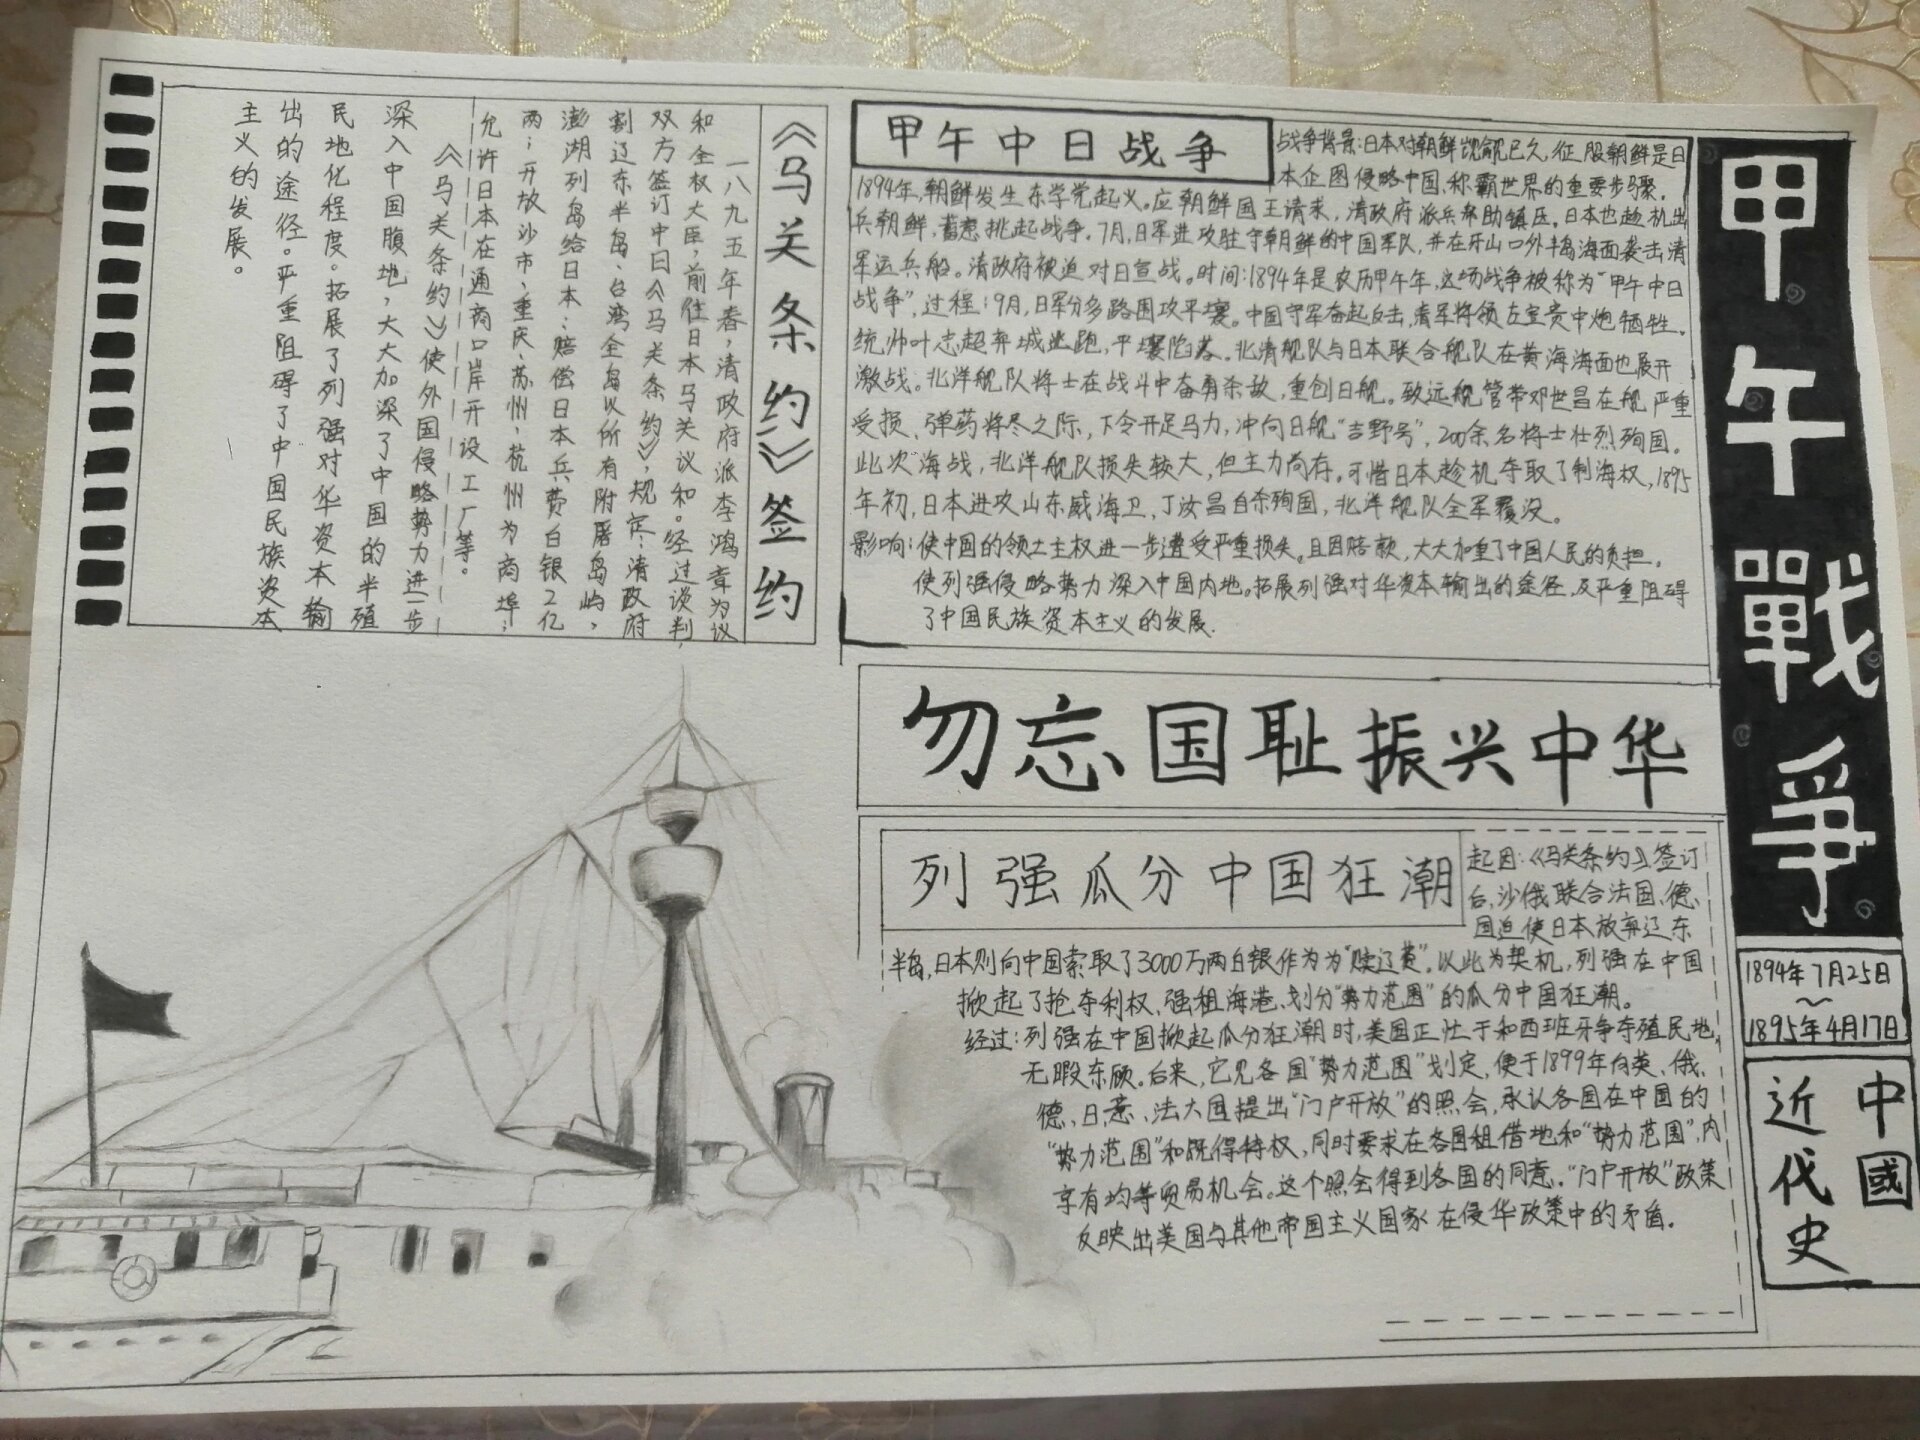 甲午戰爭
1894年7月25日
～
1895年4月17日
中國
近代史
甲午中日战争
战争背景:日本对朝鲜觊觎已久,征服朝鲜是日
本企图侵略中国、称霸世界的重要步骤。
1894年,朝鲜发生东学党起义。应朝鲜国王请求,清政府派兵帮助镇压。日本也趁机出
兵朝鲜,蓄意挑起战争。7月,日军进攻驻守朝鲜的中国军队,并在牙山口外丰岛海面袭击清
军运兵船。清政府被迫对日宣战。时间:1894年是农历甲午年,这场战争被称为“甲午中日
战争”,过程:9月,日军分多路围攻平壤。中国守军奋起反击,清军将领左宝贵中炮牺牲。
统帅叶志超弃城逃跑,平壤陷落。北清舰队与日本联合舰队在黄海海面也展开
激战。北洋舰队将士在战斗中奋勇杀敌,重创日舰。致远舰管带邓世昌在舰严重
受损、弹药将尽之际,下令开足马力,冲向日舰“吉野号”,200余名将士壮烈殉国。
此次海战,北洋舰队损失较大,但主力尚存。可惜日本趁机夺取了制海权,1895
年初,日本进攻山东威海卫,丁汝昌自杀殉国,北洋舰队全军覆没。
影响:使中国的领土主权进一步遭受严重损失。且因赔款,大大加重了中国人民的负担。
使列强侵略势力深入中国内地。拓展列强对华资本输出的途径,及严重阻碍
了中国民族资本主义的发展.
《马关条约》签约
一八九五年春,清政府派李鸿章为议
和全权大臣,前往日本马关议和。经过谈判,
双方签订中日《马关条约》,规定:清政府
割辽东半岛、台湾全岛以所有附属岛屿,
澎湖列岛给日本;赔偿日本兵费白银2亿
两;开放沙市、重庆、苏州、杭州为商埠;
允许日本在通商口岸开设工厂等。
《马关条约》使外国侵略势力进一步
深入中国腹地,大大加深了中国的半殖
民地化程度。拓展了列强对华资本输
出的途径。严重阻碍了中国民族资本
主义的发展。
勿忘国耻振兴中华
列强瓜分中国狂潮
起因:《马关条约》签订
后,沙俄联合法国、德
国迫使日本放弃辽东
半岛,日本则向中国索取了3000万两白银作为为“赎辽费”。以此为契机,列强在中国
掀起了抢夺利权、强租海港、划分“势力范围”的瓜分中国狂潮。
经过:列强在中国掀起瓜分狂潮时,美国正忙于和西班牙争夺殖民地,
无暇东顾。后来,它见各国“势力范围”划定,便于1899年向英、俄、
德、日、意、法六国提出“门户开放”的照会,承认各国在中国的
“势力范围”和既得特权,同时要求在各国租借地和“势力范围”内
享有均等贸易机会。这个照会得到各国的同意。“门户开放”政策
反映出美国与其他帝国主义国家在侵华政策中的矛盾。